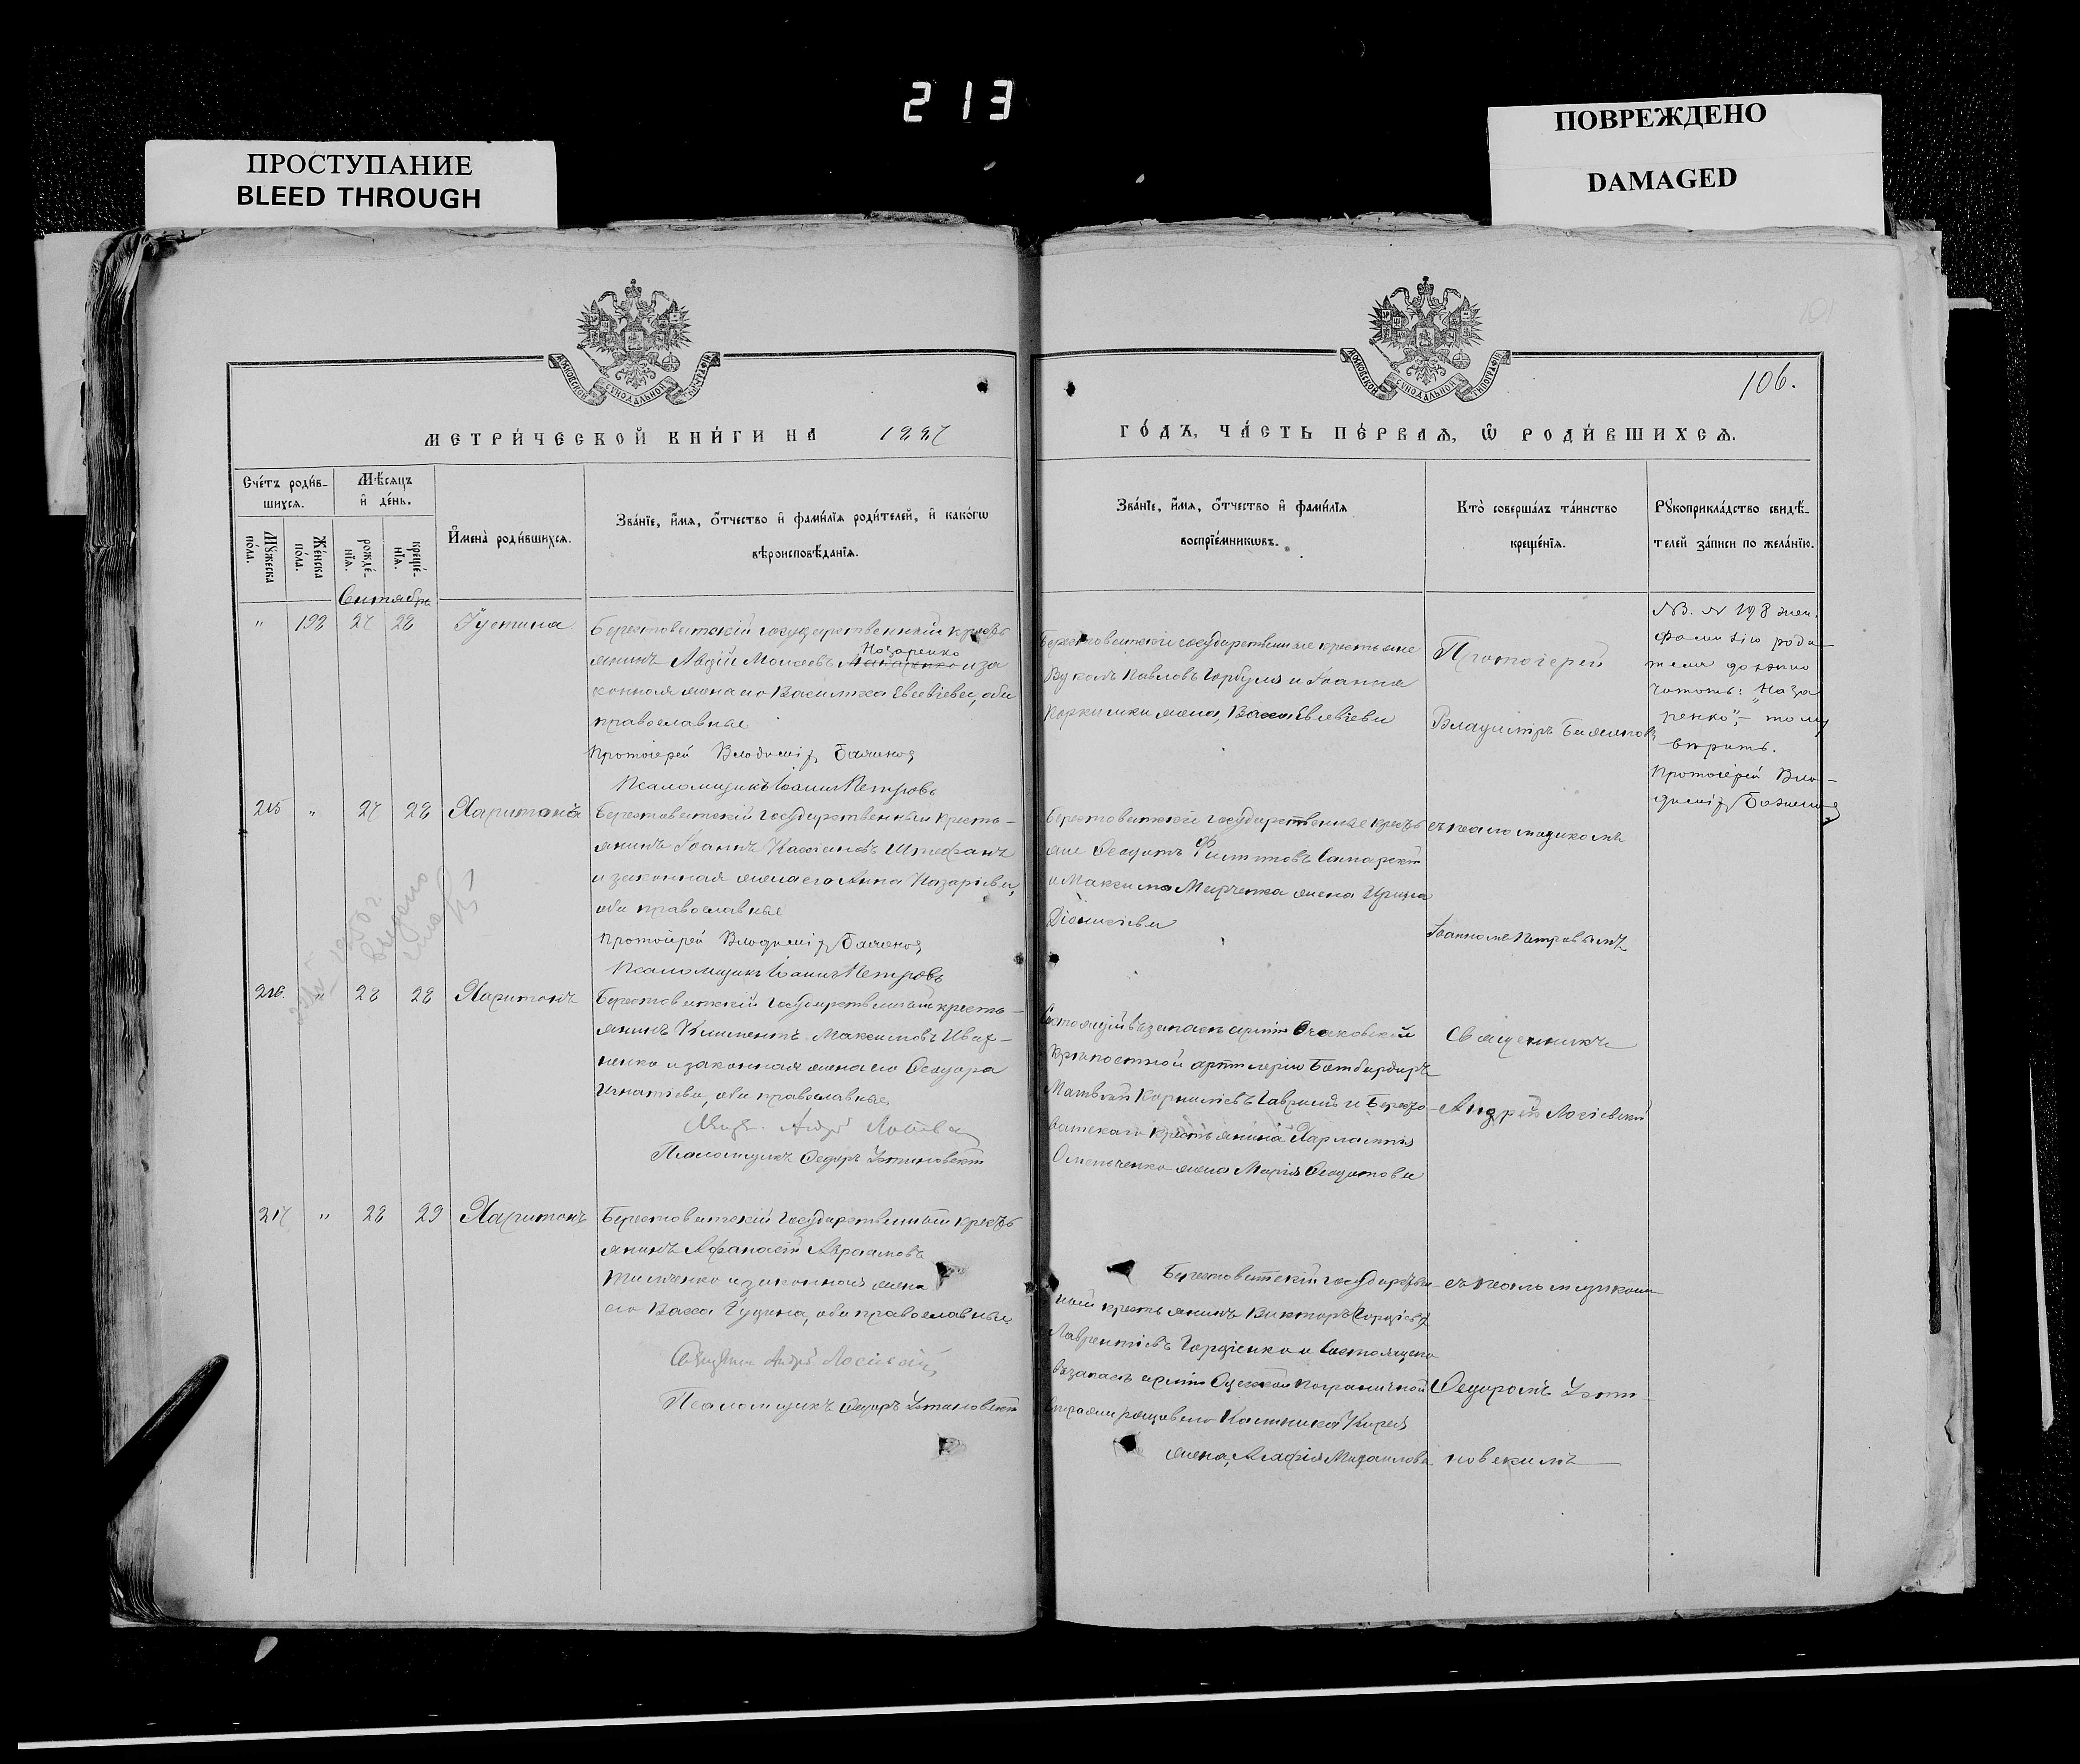 213
ПРОСТУПАНИЕ
BLEED THROUGH
ПОВРЕЖДЕНО
DAMAGED
МОСКОВСКОЙ СУНОДАЛЬНОЙ ТИПОГРАФІИ
МОСКОВСКОЙ СУНОДАЛЬНОЙ ТИПОГРАФІИ
106.
МЕТРИ́ЧЕСКОЙ КНИ́ГИ НА 1887
ГО́ДЪ, ЧА́СТЬ ПЕ́РВАѦ, Ѡ РОДИ́ВШИХСѦ.
Сче́тъ роди́в-
шихся.
Мѣ́сяцъ
и де́нь.
Мꙋ́жеска по́ла.
Же́нска по́ла.
рожде́-
нїя.
креще́-
нїя.
И҆мена̀ роди́вшихся.
Зва́нїе, и҆́мя, ѻ҆́тчество и҆ фами́лїя роди́телей, и҆ како́гѡ
вѣроисповѣ́данїя.
Зва́нїе, и҆́мя, ѻ҆́тчество и҆ фами́лїя
воспрїе́мникѡвъ.
Кто̀ соверша́лъ та́инство
креще́нїя.
Рꙋкоприкла́дство свидѣ́-
телей за́писи по жела́нїю.
Сентябрь
" 198 27 28 Іустина
Берестоватскій государственный кресть
янинъ Авдій Моисеевъ Назаренко и за
конная жена его Василиса Евсевіева, оба
православные
Протоіерей Владиміръ Баженовъ
Псаломщикъ Іоаннъ Петровъ
Берестоватскіе государственные крестьяне
Вуколъ Павловъ Горбуля и Іоанна
жена, Васса Евсевіева
Протоіерей
Владиміръ Баженовъ
NB. № 198 жен.
фамилію роди-
теля должно
читать: "Наза
ренко", – тому
вѣрить.
Протоіерей Вла-
диміръ Баженовъ
215 " 27 28 Харитонъ
Берестоватскій государственный кресть-
янинъ Іоаннъ Кассіановъ Штефанъ
и законная жена его Анна Назаріева,
оба православные
Протоіерей Владиміръ Баженовъ
Псаломщикъ Іоаннъ Петровъ
Берестоватскіе государственные кресть
яне Ѳеодотъ Филиповъ Самарскій
и Максима Марченка жена Ирина
Діонисіева
съ псаломщикомъ
Іоанномъ Петровымъ
216. " 28 28 Харитонъ
Берестоватскій государственный кресть-
янинъ Климентъ Максимовъ Ивах-
ненко и законная жена его Ѳеодора
Игнатіева, оба православные
Свящ. Андрей
Псаломщикъ Ѳедоръ Устиновскій
Состоящій въ запасѣ арміи Очаковской
крѣпостной артиллеріи Бомбардиръ
Матвѣй Корниліевъ Гаврилъ и Бересто
ватскаго крестьянина Харлампія
Омельченко жена Марія Ѳеодотова
Священникъ
Андрей Лосіевскій
217 " 28 29 Харитонъ
Берестоватскій государственный кресть
янинъ Афанасій Авраамовъ
Тимченко и законная жена
его Васса Іудина, оба православные
Священникъ Андрей Лосіевскій
Псаломщикъ Ѳедоръ Устиновскій
Берестоватскій государствен
ный крестьянинъ Викторъ
Лаврентіевъ Гордіенко и состоящаго
въ запасѣ арміи пограничной
стражи рядоваго Калиника Кирея
жена, Агафія Михаилова
съ псаломщикомъ
Ѳедоромъ Усти-
новскимъ